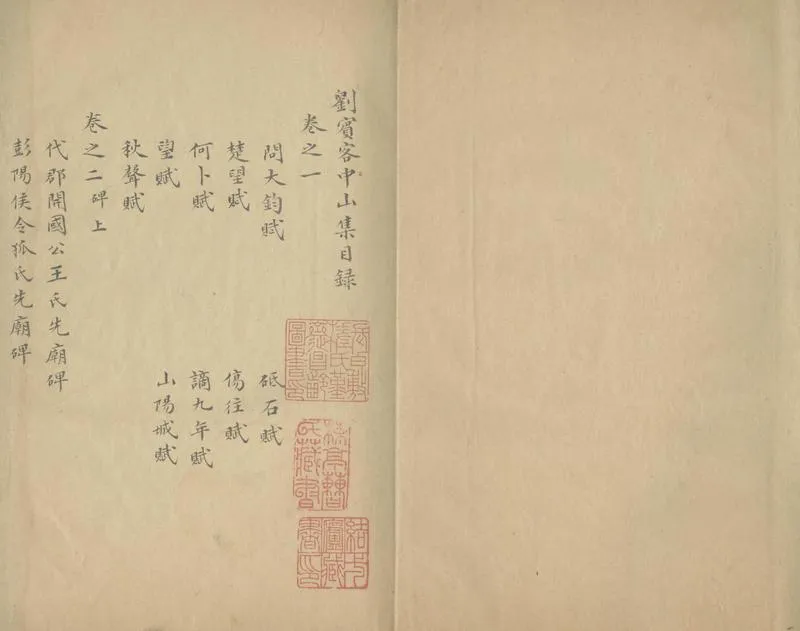 劉賓客中山集目録
卷之一
問大鈞賦 砥石賦
楚望賦 傷往賦
何卜賦 謫九年賦
望賦 山陽城賦
秋聲賦
卷之二碑上
代郡開國公王氏先廟碑
彭陽侯令狐氏先廟碑
結一廬藏書印